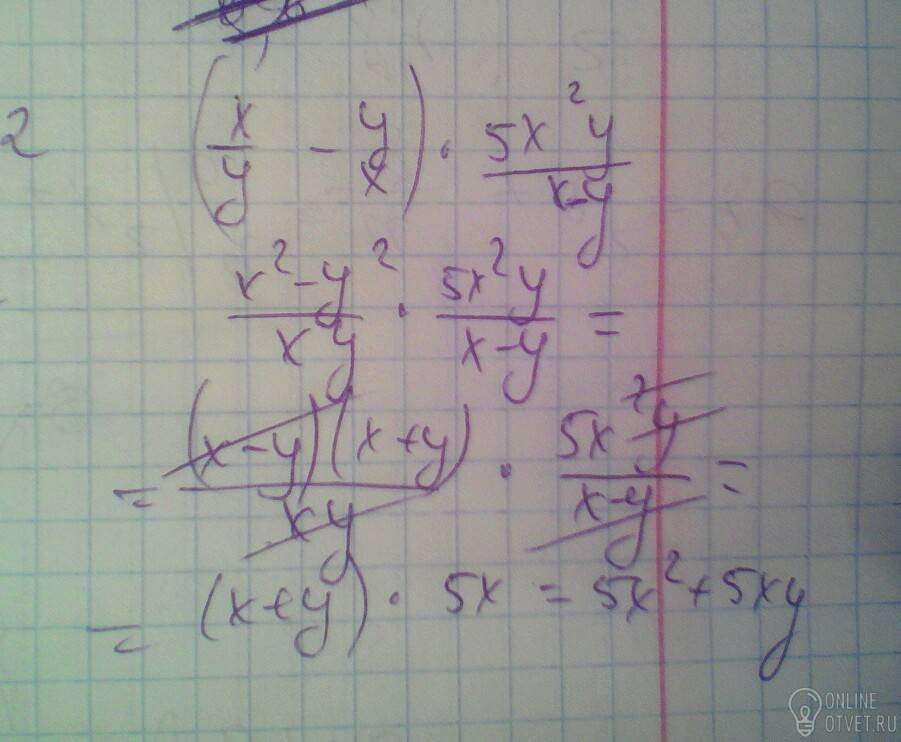 2 (x/y - y/x) · 5x²y/x-y
x²-y²/xy · 5x²y/x-y =
= (x-y)(x+y)/xy · 5x²y/x-y =
= (x+y) · 5x = 5x²+5xy
ONLINE
OTVET.RU